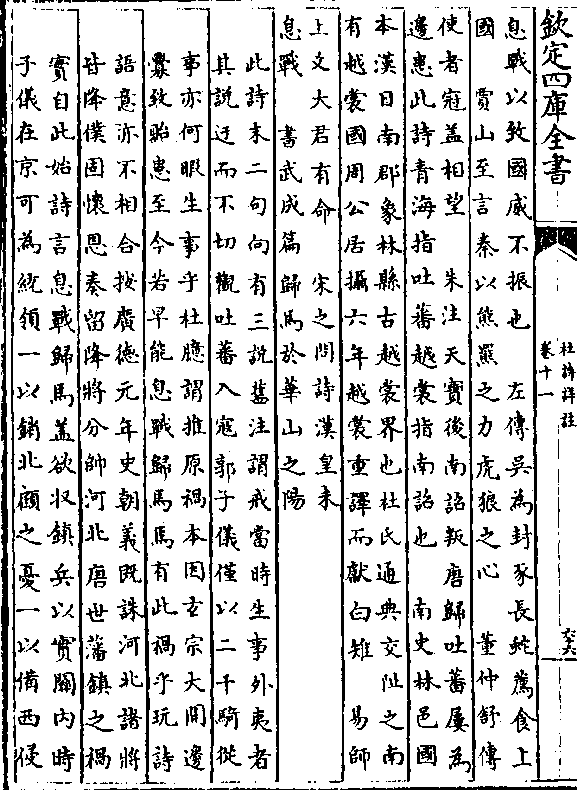 欽定四庫全書
息戰以致國威不振也 左傳吳為封豕長蛇薦食上
國 賈山至言秦以熊羆之力虎狼之心 董仲舒傳
使者冠蓋相望 朱注天寶後南詔叛唐歸吐蕃屢為
邊患此詩青海指吐蕃越裳指南詔也 南史林邑國
本漢日南郡象林縣古越裳界也杜氏通典交阯之南
有越裳國周公居攝六年越裳重譯而獻白雉 易師
上文大君有命 宋之問詩漢皇未
息戰 書武成篇歸馬於華山之陽
此詩末二句向有三說舊注謂戒當時生事外夷者
其說迂而不切觀吐蕃入寇郭子儀僅以二千騎從
事亦何暇生事乎杜臆謂推原禍本因玄宗大開邊
釁致貽患至今若早能息戰歸馬焉有此禍乎玩詩
語意亦不相合按廣德元年史朝義既誅河北諸將
甘降僕固懷恩奏留降將分帥河北唐世藩鎮之禍
實自此始詩言息戰歸馬蓋欲收鎮兵以實關內時
子儀在京可為統領一以銷北顧之憂一以備西侵
杜詩詳註
卷十一